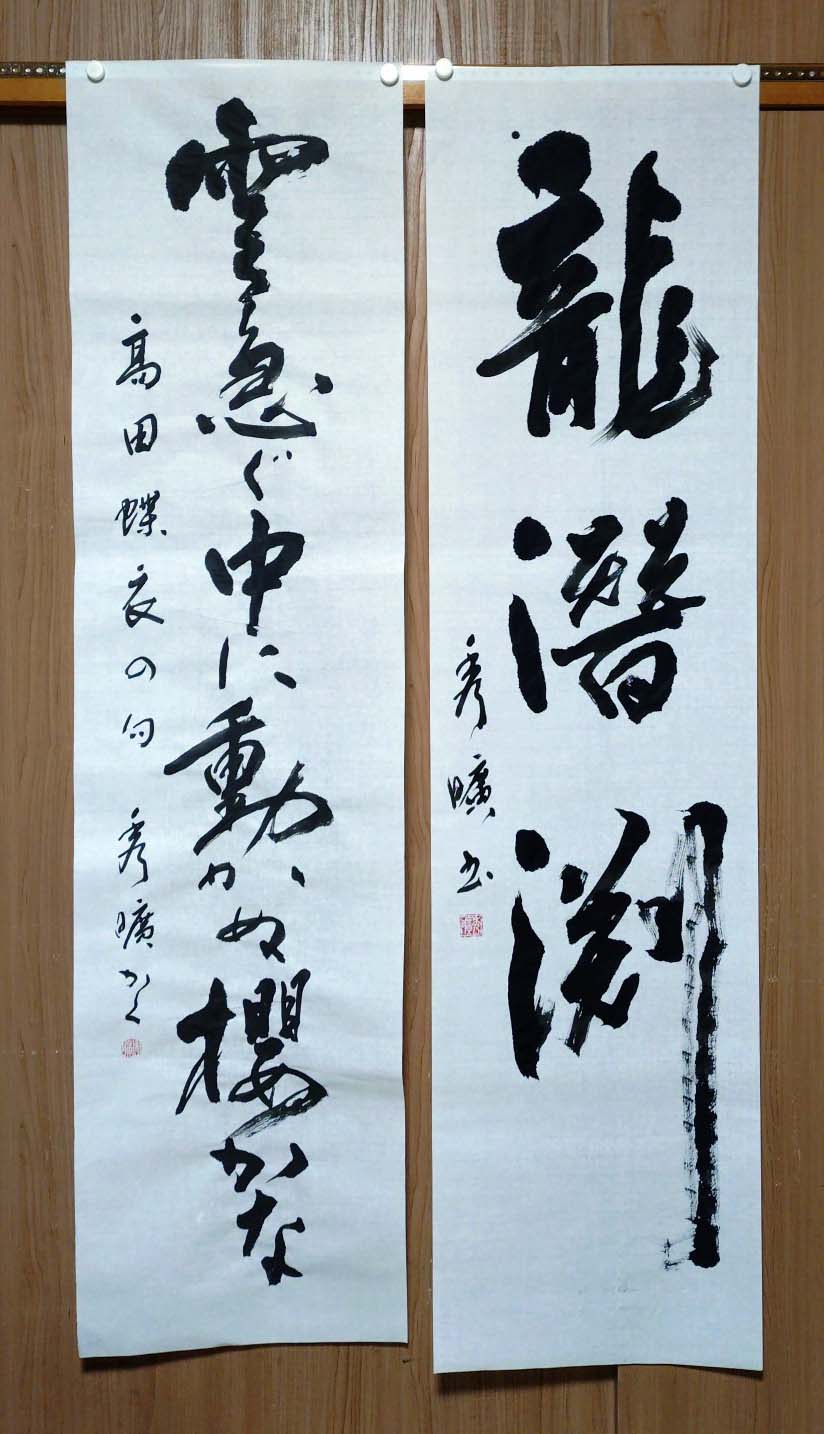 龍潛淵
秀曠書
雲急ぐ中に動かぬ櫻かな
高田蝶衣の句 秀曠かく